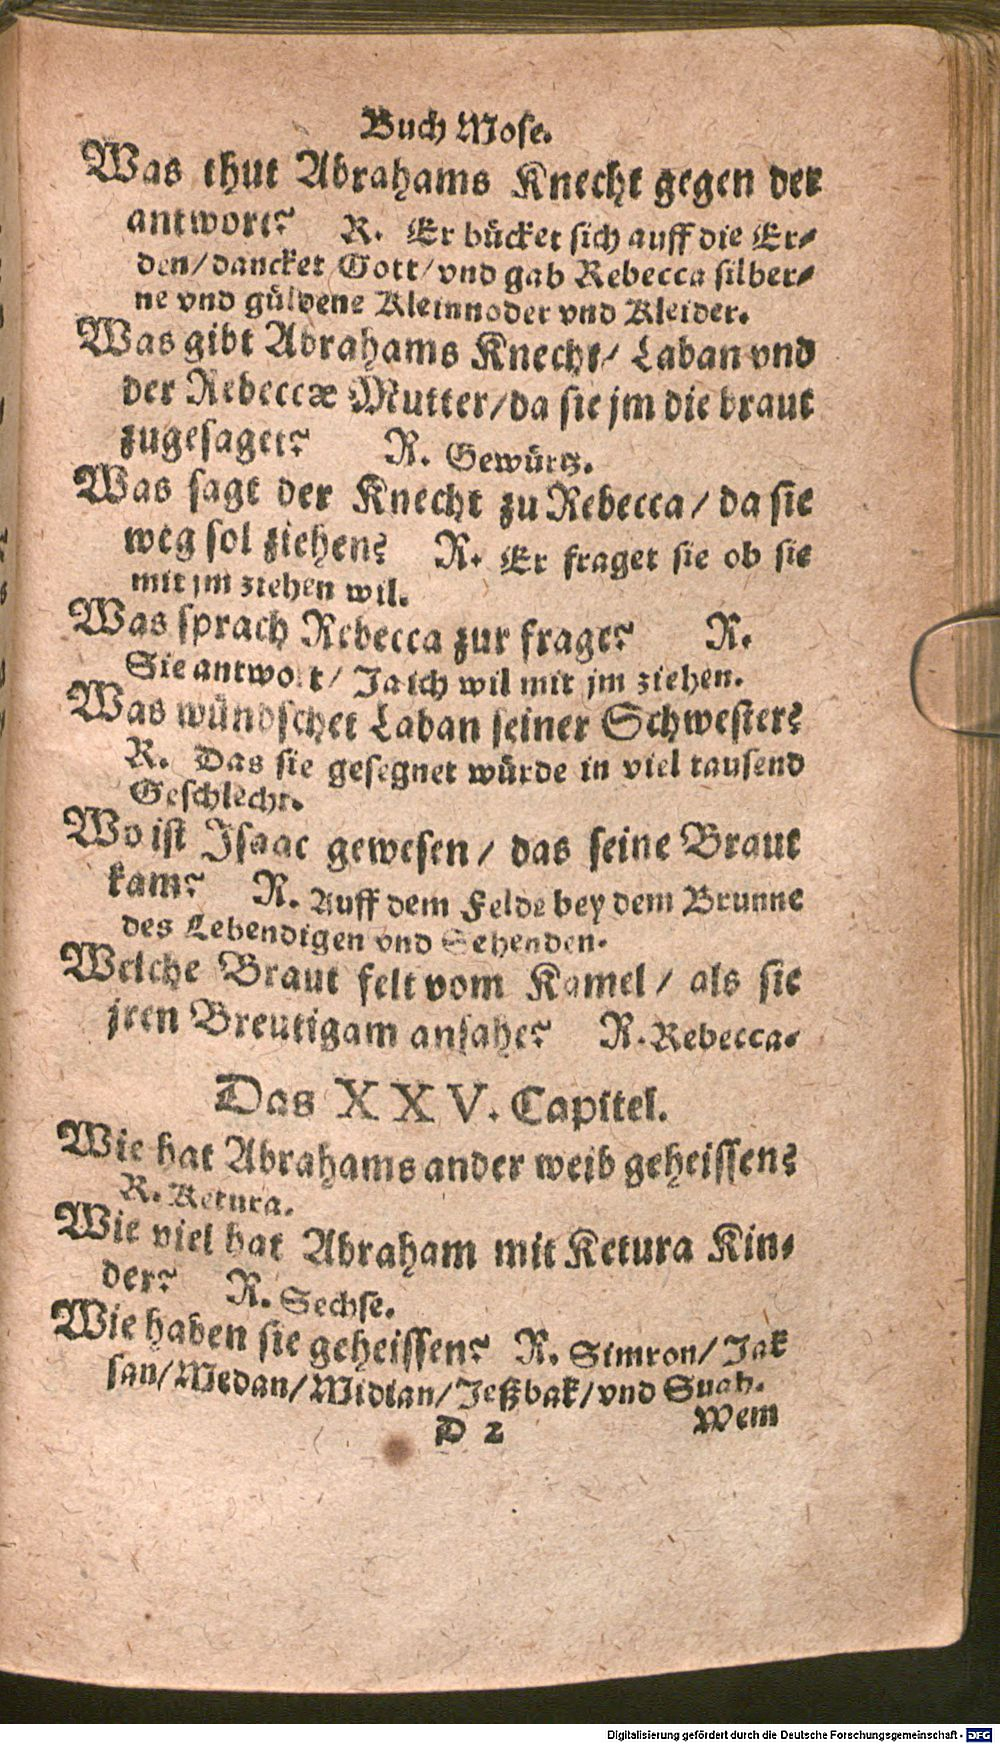 Buch Mose.
Was thut Abrahams Knecht gegen der
antwort? R. Er bücket sich auff die Er-
den/dancket Gott/vnd gab Rebecca silber-
ne vnd güldene Kleinnoder vnd Kleider.
Was gibt Abrahams Knecht/ Laban vnd
der Rebeccæ Mutter/da sie jm die braut
zugesaget? R. Gewürtz.
Was sagt der Knecht zu Rebecca/ da sie
weg sol ziehen? R. Er fraget sie ob sie
mit jm ziehen wil.
Was sprach Rebecca zur frage? R.
Sie antwort/ Ja ich wil mit jm ziehen.
Was wündschet Laban seiner Schwester?
R. Das sie gesegnet würde in viel tausend
Geschlecht.
Wo ist Isaac gewesen/ das seine Braut
kam? R. Auff dem Felde bey dem Brunne
des Lebendigen vnd Sehenden.
Welche Braut felt vom Kamel/ als sie
jren Breutigam ansahe? R. Rebecca.
Das XXV. Capitel.
Wie hat Abrahams ander weib geheissen?
R. Ketura.
Wie viel hat Abraham mit Ketura Kin-
der? R. Sechse.
Wie haben sie geheissen? R. Simron/ Jak
san/Medan/Midian/Jeßbak/vnd Suah.
D 2 Wem
Digitalisierung gefördert durch die Deutsche Forschungsgemeinschaft - DFG